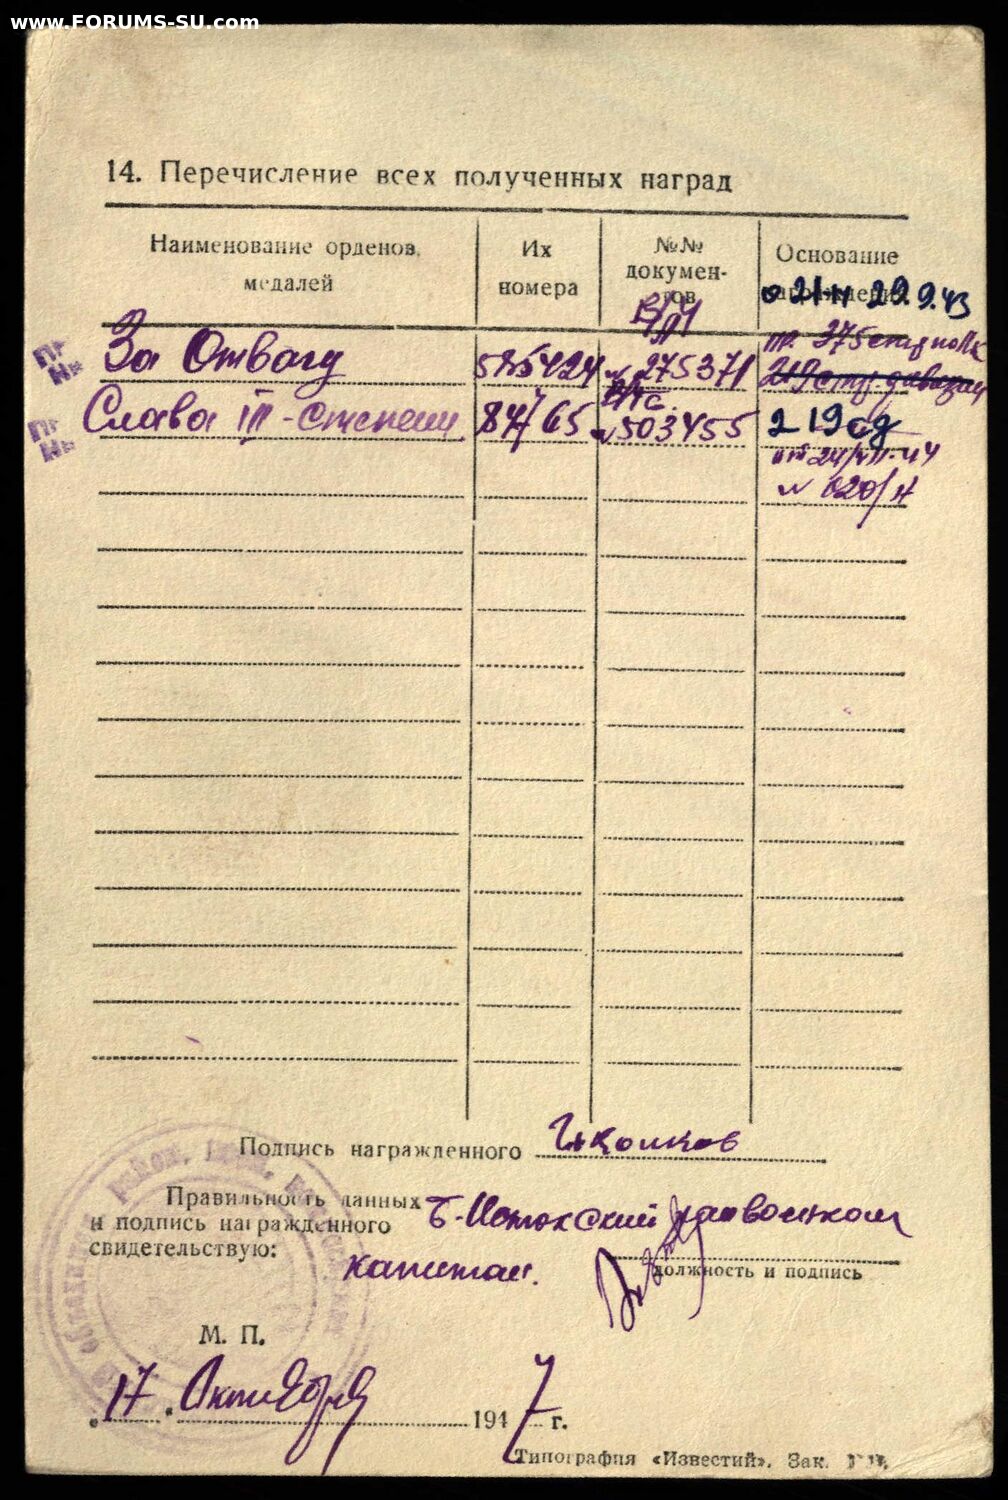 www.FORUMS-SU.com
14. Перечисление всех полученных наград
Наименование орденов, медалей
Их номера
№№ документов
Основание награждения
о 21/н 29.9.43
В/М
пр. 375 стр полк
За Отвагу 585424 № 275371 219 стр дивизии
Слава III-степени 84765 № 503455 219 сд
от 24/VII-44
№ 020/н
Подпись награжденного
Правильность данных
и подпись награжденного
свидетельствую:
райвоенком
капитан.
должность и подпись
М. П.
"17" Октября 1947 г.
Типография «Известий». Зак.